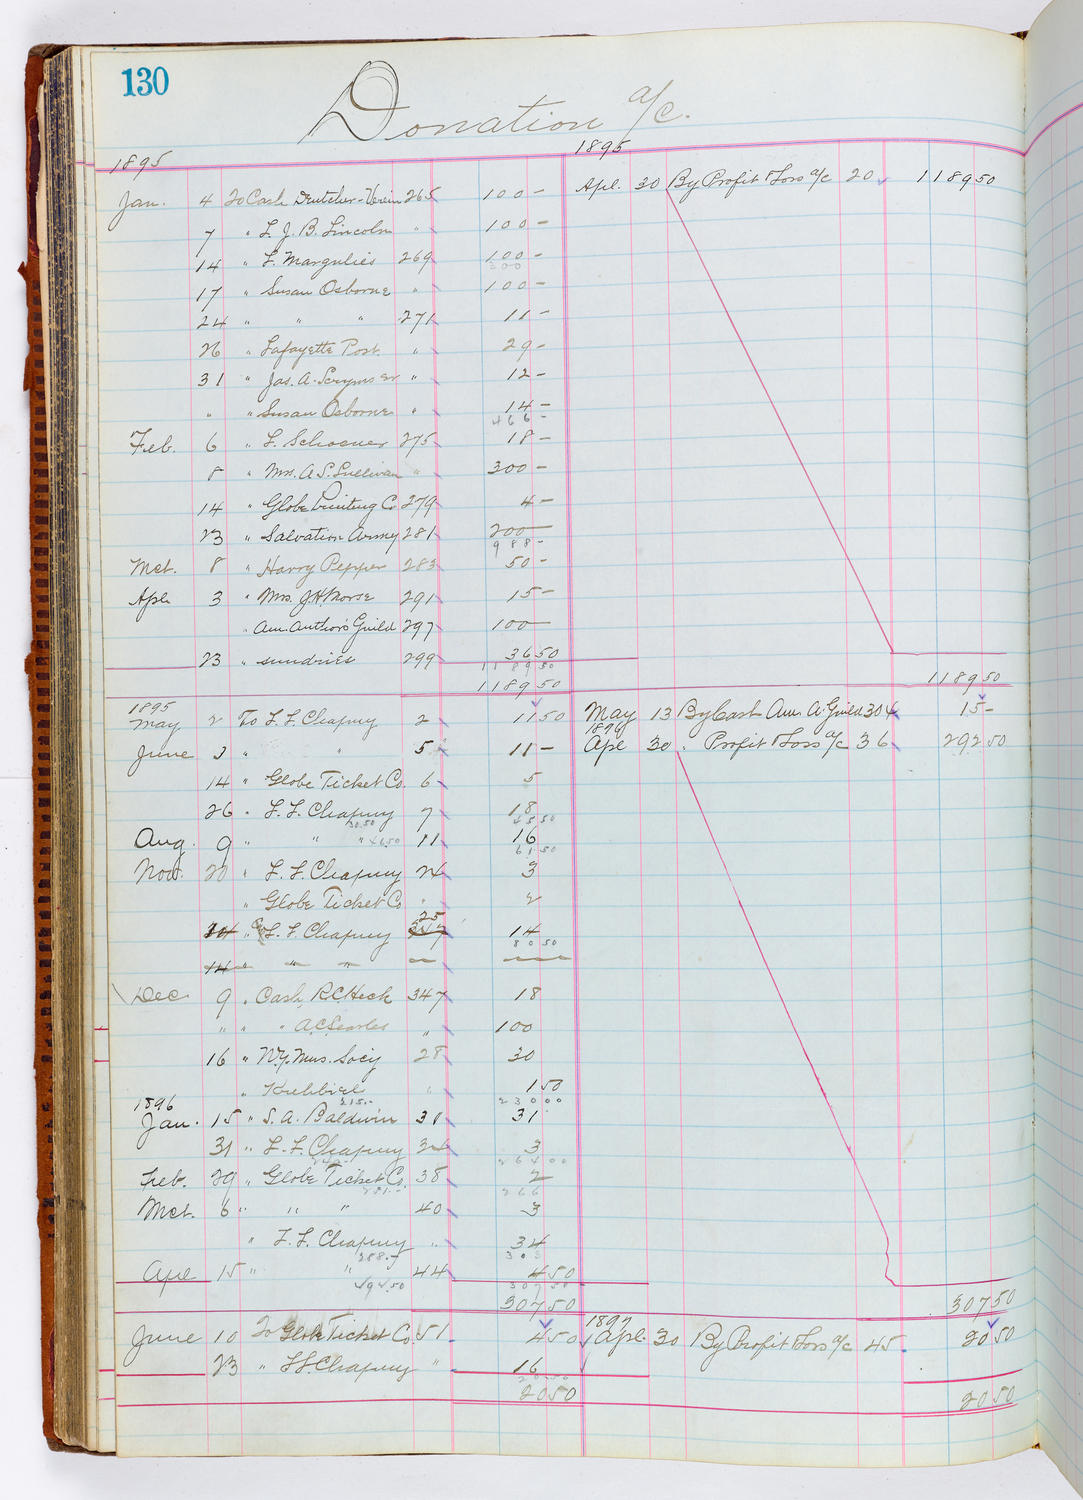 130
Donation a/c.
1895 1895
Jan. 4 To Cash Deutcher-Verein 265 100 - Apl. 30 By Profit & Loss a/c 20 118950
7 " L. J. B. Lincoln " 100 -
14 " L. Margulies 269 100 -
300
17 " Susan Osborne " 100 -
24 " " " 271 11 -
26 " Lafayette Post " 29 -
31 " Jas. A. Scrymser " 12 -
" " Susan Osborne " 14 -
466 -
Feb. 6 " F. Schoener 275 18 -
8 " Mrs. A. S. Sullivan " 300 -
14 " Globe Printing Co 279 4 -
23 " Salvation Army 281 200
988 -
Mct. 8 " Harry Pepper 283 50 -
Apl. 3 " Mrs. J H Morse 291 15 -
" Am. Author's Guild 297 100
23 " sundries 299 3650
118950
118950 118950
1895
May 2 To L. F. Chapuy 2 1150 May 13 By Cash Am. A. Guild 304 15 -
1896
June 3 " " 5 11 - Apl 30 " Profit & Loss a/c 36 29250
14 " Globe Ticket Co. 6 5
26 " L. F. Chapuy 7 18
30.50 4550
Aug. 9 " " " 46.50 11 16
6150
Nov. 20 " L. F. Chapuy 24 3
" Globe Ticket Co " 2
25
" L. F. Chapuy 14
8050
14 " " "
Dec 9 " Cash, R. C. Heck 347 18
" " " A. C. Searles " 100
16 " N.Y. Mus. Socy 28 30
" Krehbiel " 150
1896 215.- 23000
Jan. 15 " S. A. Baldwin 31 31
31 " L. F. Chapuy 34 3
26400
Feb. 29 " Globe Ticket Co. 38 2
251.- 266
Mct. 6 " " " 40 3
" L. F. Chapuy " 34
288.- 303
Apl 15 " " 44 450
494.50 30750
30750 30750
1897
June 10 To Globe Ticket Co. 51 450 Apl. 30 By Profit & Loss a/c 45 2050
23 " L F. Chapuy " 16
2050
2050 2050